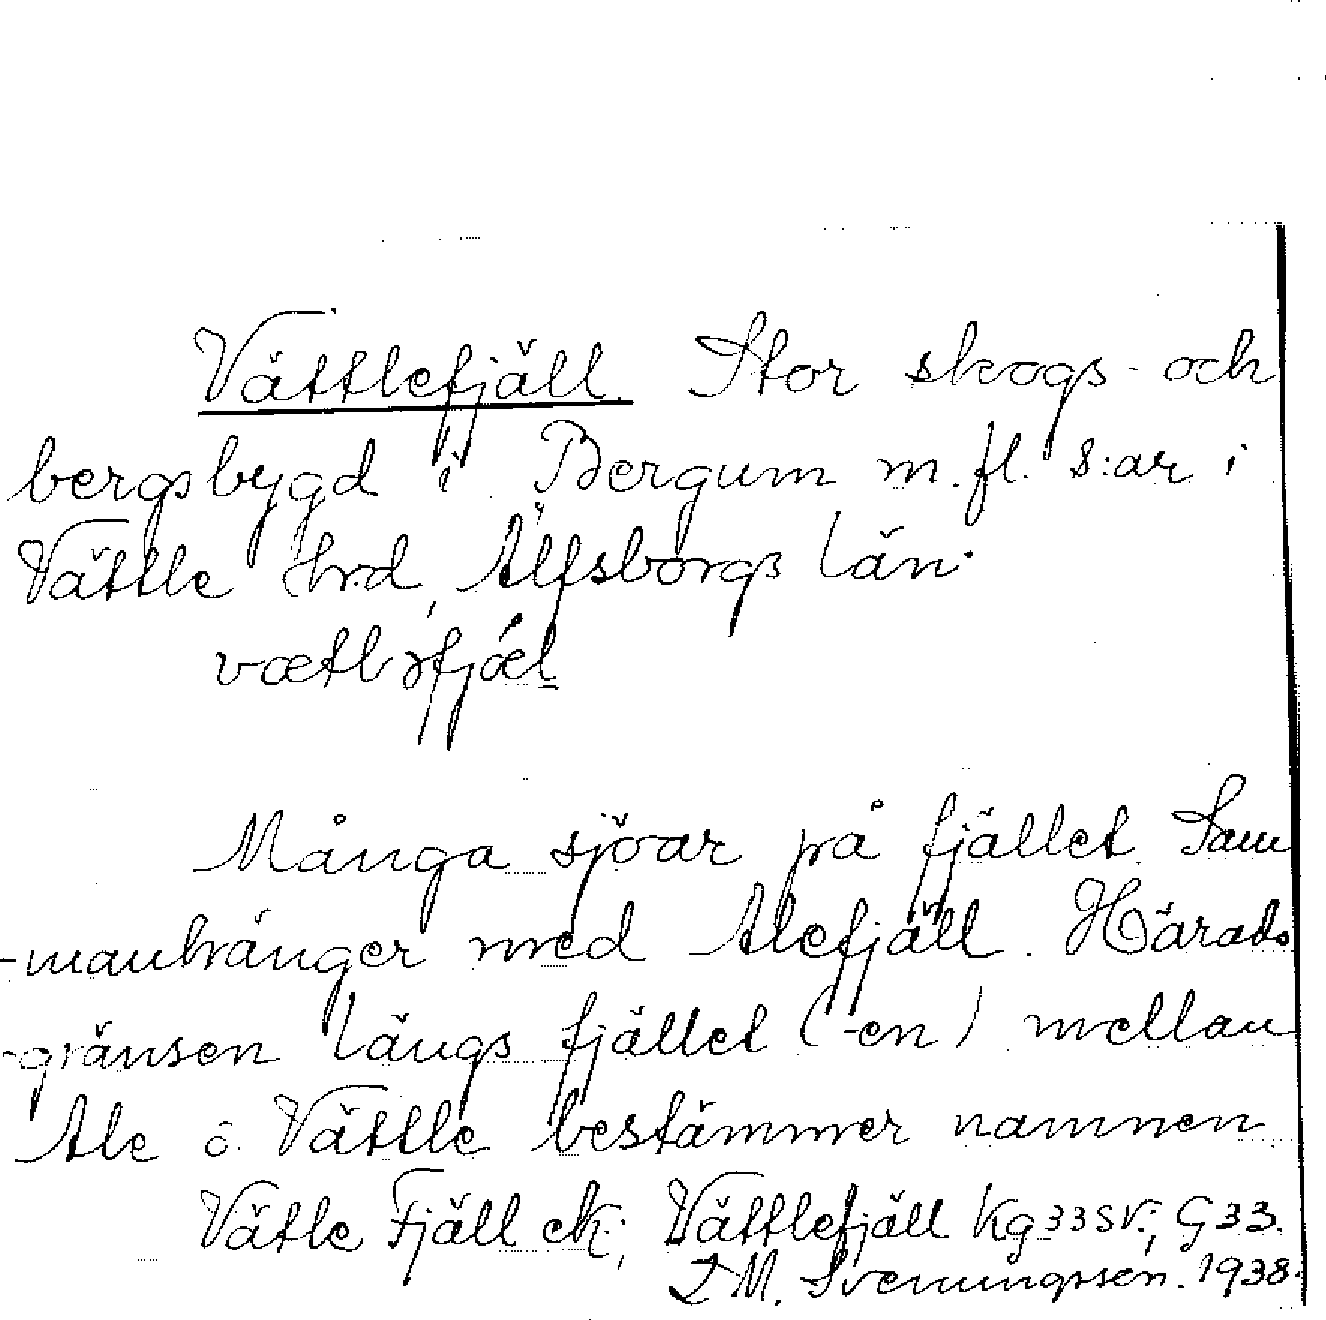 Vättlefjäll. Stor skogs- och
bergsbygd i Bergum m.fl. s:ar i
Vättle hrd, Älfsborgs län.
Många sjöar på fjället. Sam
-manhänger med Alefjäll. Härads
-gränsen längs fjället (-en) mellan
Ale o. Vättle bestämmer namnen
Vätle Fjäll ek; Vättlefjäll Kg 33 SV; G 33.
L M. Svenungsson. 1938.